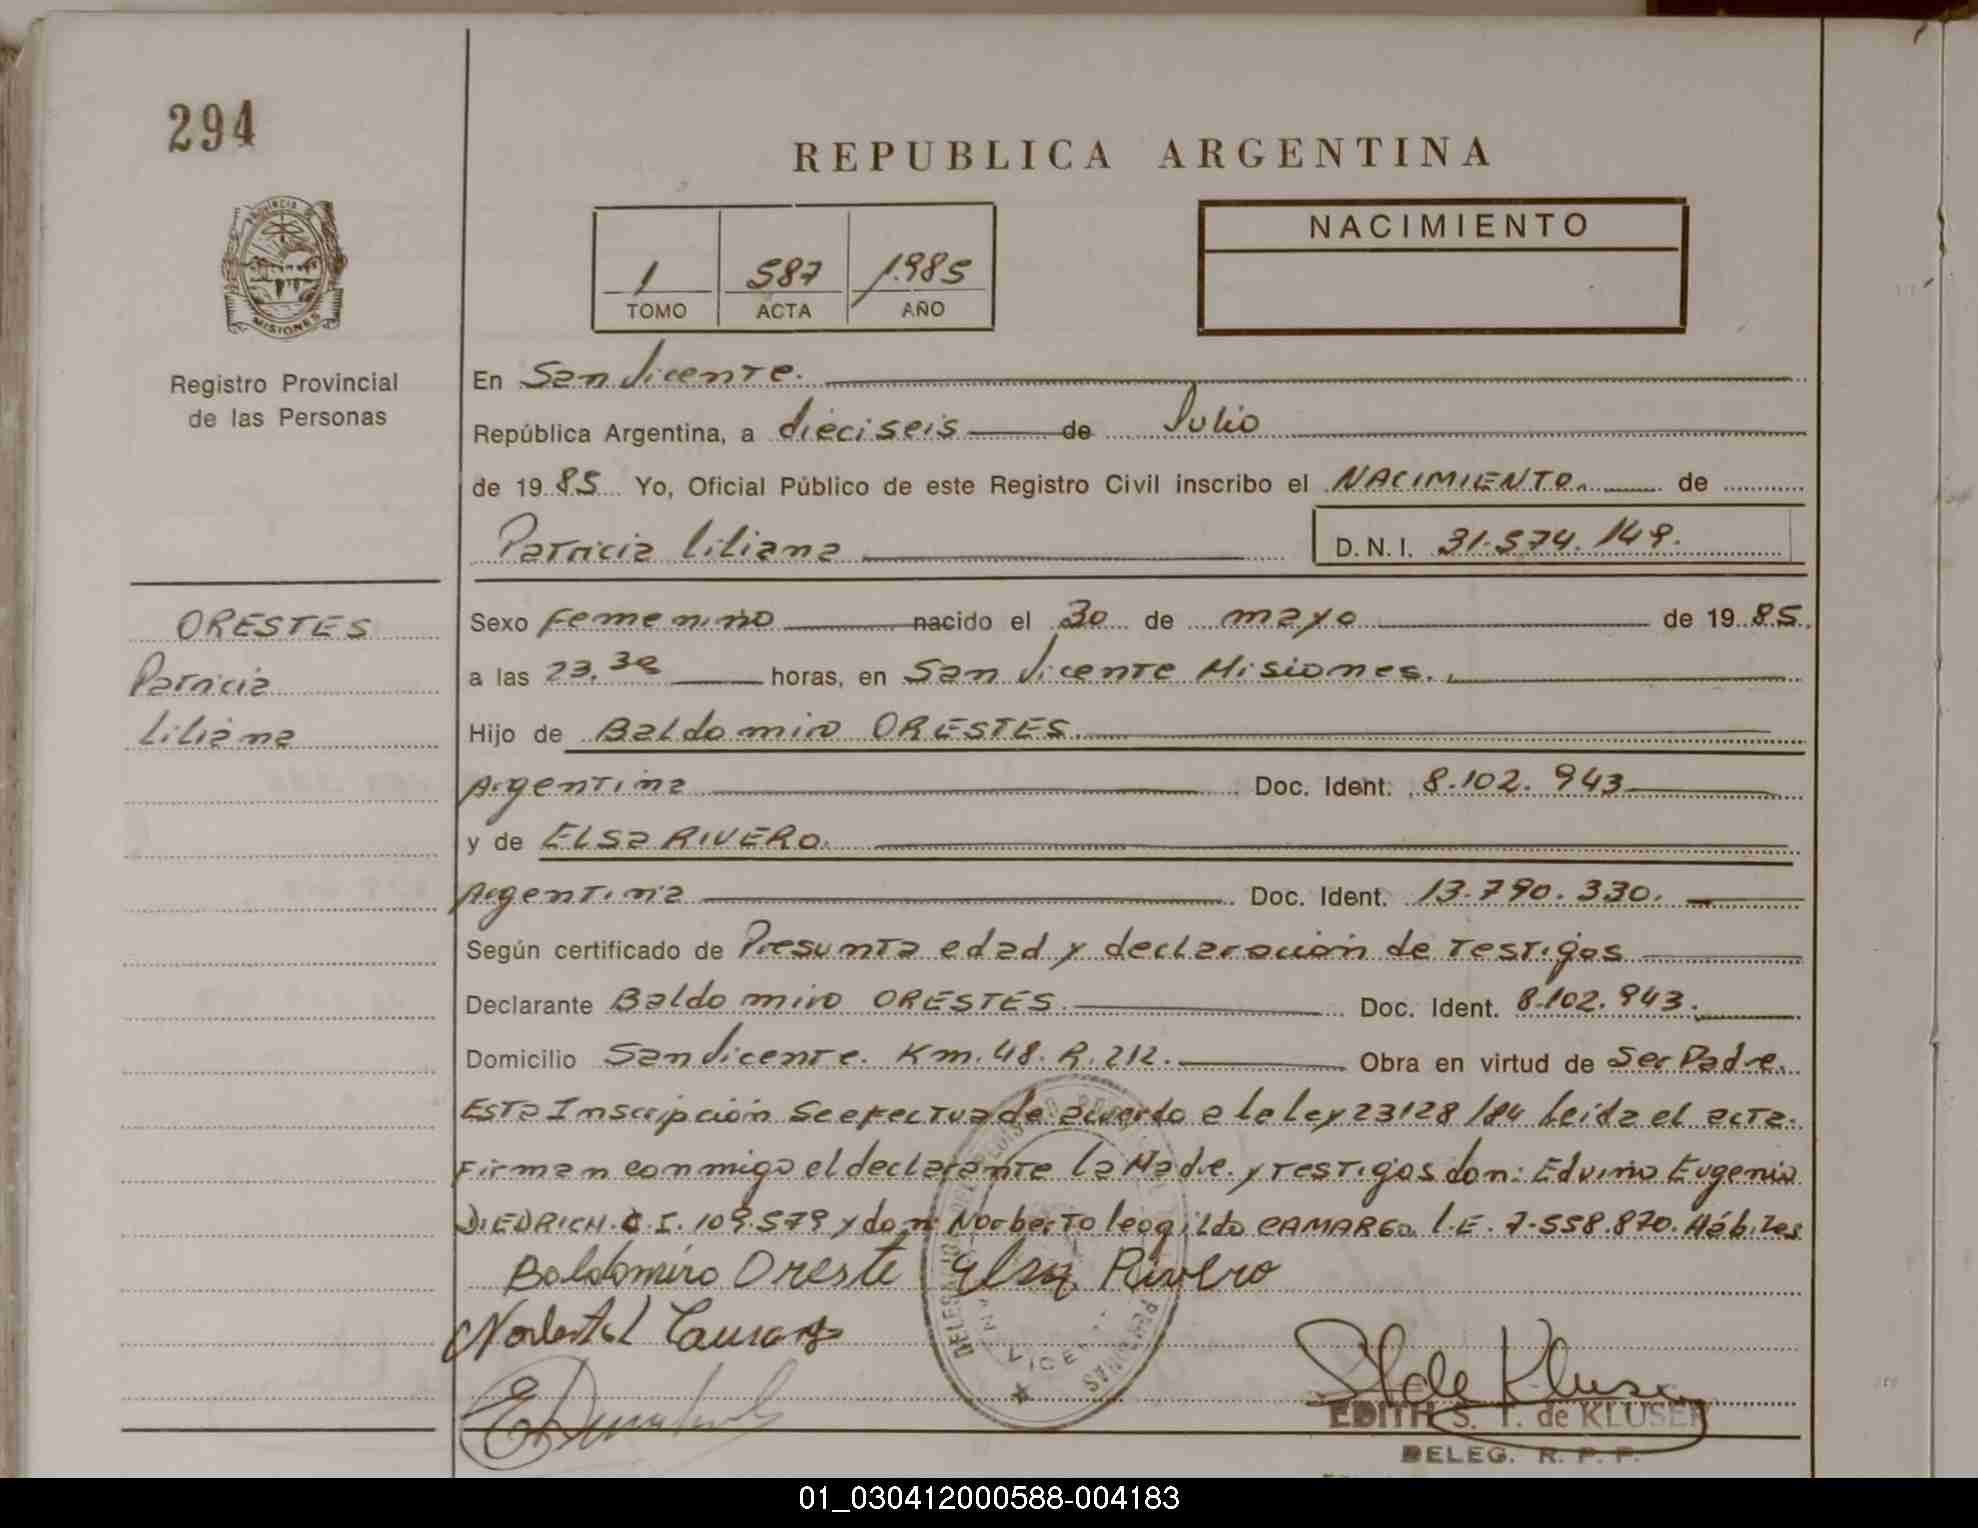 294
REPUBLICA ARGENTINA
PROVINCIA DE
MISIONES
1 587 1.985
TOMO ACTA AÑO
NACIMIENTO
Registro Provincial
de las Personas
En San Vicente.
República Argentina, a dieciseis de Julio
de 19 85 Yo, Oficial Público de este Registro Civil inscribo el NACIMIENTO. de
Patricia Liliana D.N.I. 31.574.149.
ORESTES
Patricia
Liliana
Sexo Femenino nacido el 30 de mayo de 19 85.
a las 23.30 horas, en San Vicente Misiones.
Hijo de Baldomiro ORESTES.
Argentina Doc. Ident. 8.102.943
y de ELSA RIVERO.
Argentina Doc. Ident. 13.790.330.
Según certificado de Presunta edad y declaración de testigos
Declarante Baldomiro ORESTES. Doc. Ident. 8.102.943.
Domicilio San Vicente. Km.48.R.212. Obra en virtud de Ser Padre.
Esta Inscripción Se efectua de acuerdo a la ley 23128/84 Leida el acta.
Firman conmigo el declarante la Madre. y testigos don: Edvino Eugenio
DIEDRICH. C.I. 109.579 y don Norberto Leogildo CAMARGO. L.E. 7.558.870. Hábiles
Baldomiro Oreste Elsa Rivero
Norberto L Camargo
EDITH S. T. de KLUSER
DELEG. R. P. P.
01_030412000588-004183